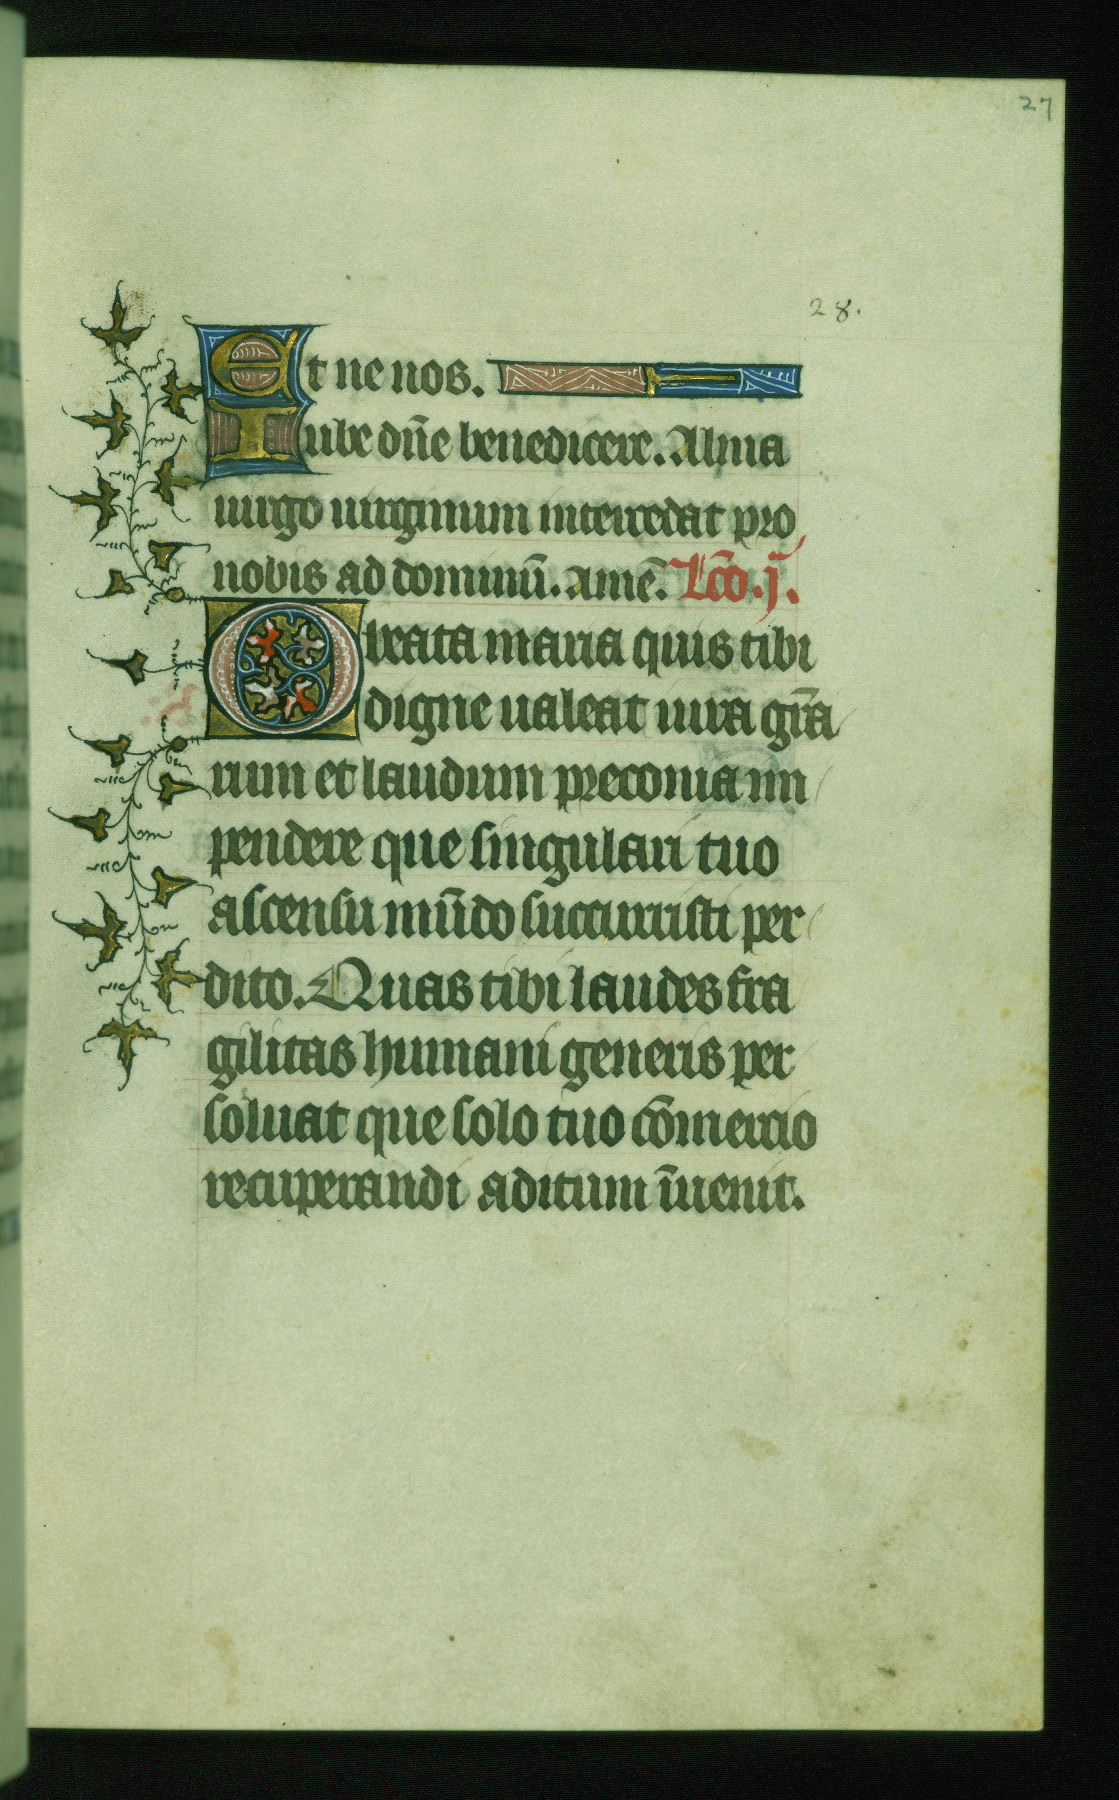 27
28.
Et ne nos.
Iube dn̄e benedicere. Alma
uirgo uirginum intercedat pro
nobis ad dominū. amē. Lc̄o. j̄.
O beata maria quis tibi
digne ualeat iura gr̄a
rum et laudum preconia im
pendere que singulari tuo
ascensu mūdo succurristi per
dito. Quas tibi laudes fra
gilitas humani generis per
soluat que solo tuo cōmercio
recuperandi aditum īuenit.